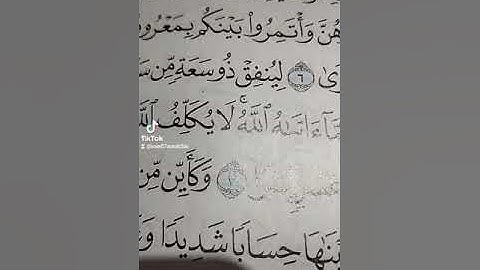 هُنَّ وَأْتَمِرُوا۟ بَيْنَكُم بِمَعْرُو
رَىٰ ٦ لِيُنفِقْ ذُو سَعَةٍ مِّن سَ
ءَاتَىٰهُ ٱللَّهُ ۚ لَا يُكَلِّفُ ٱللَّ
٧ وَكَأَيِّن مِّن
حِسَابًا شَدِيدًا وَعَ
TikTok